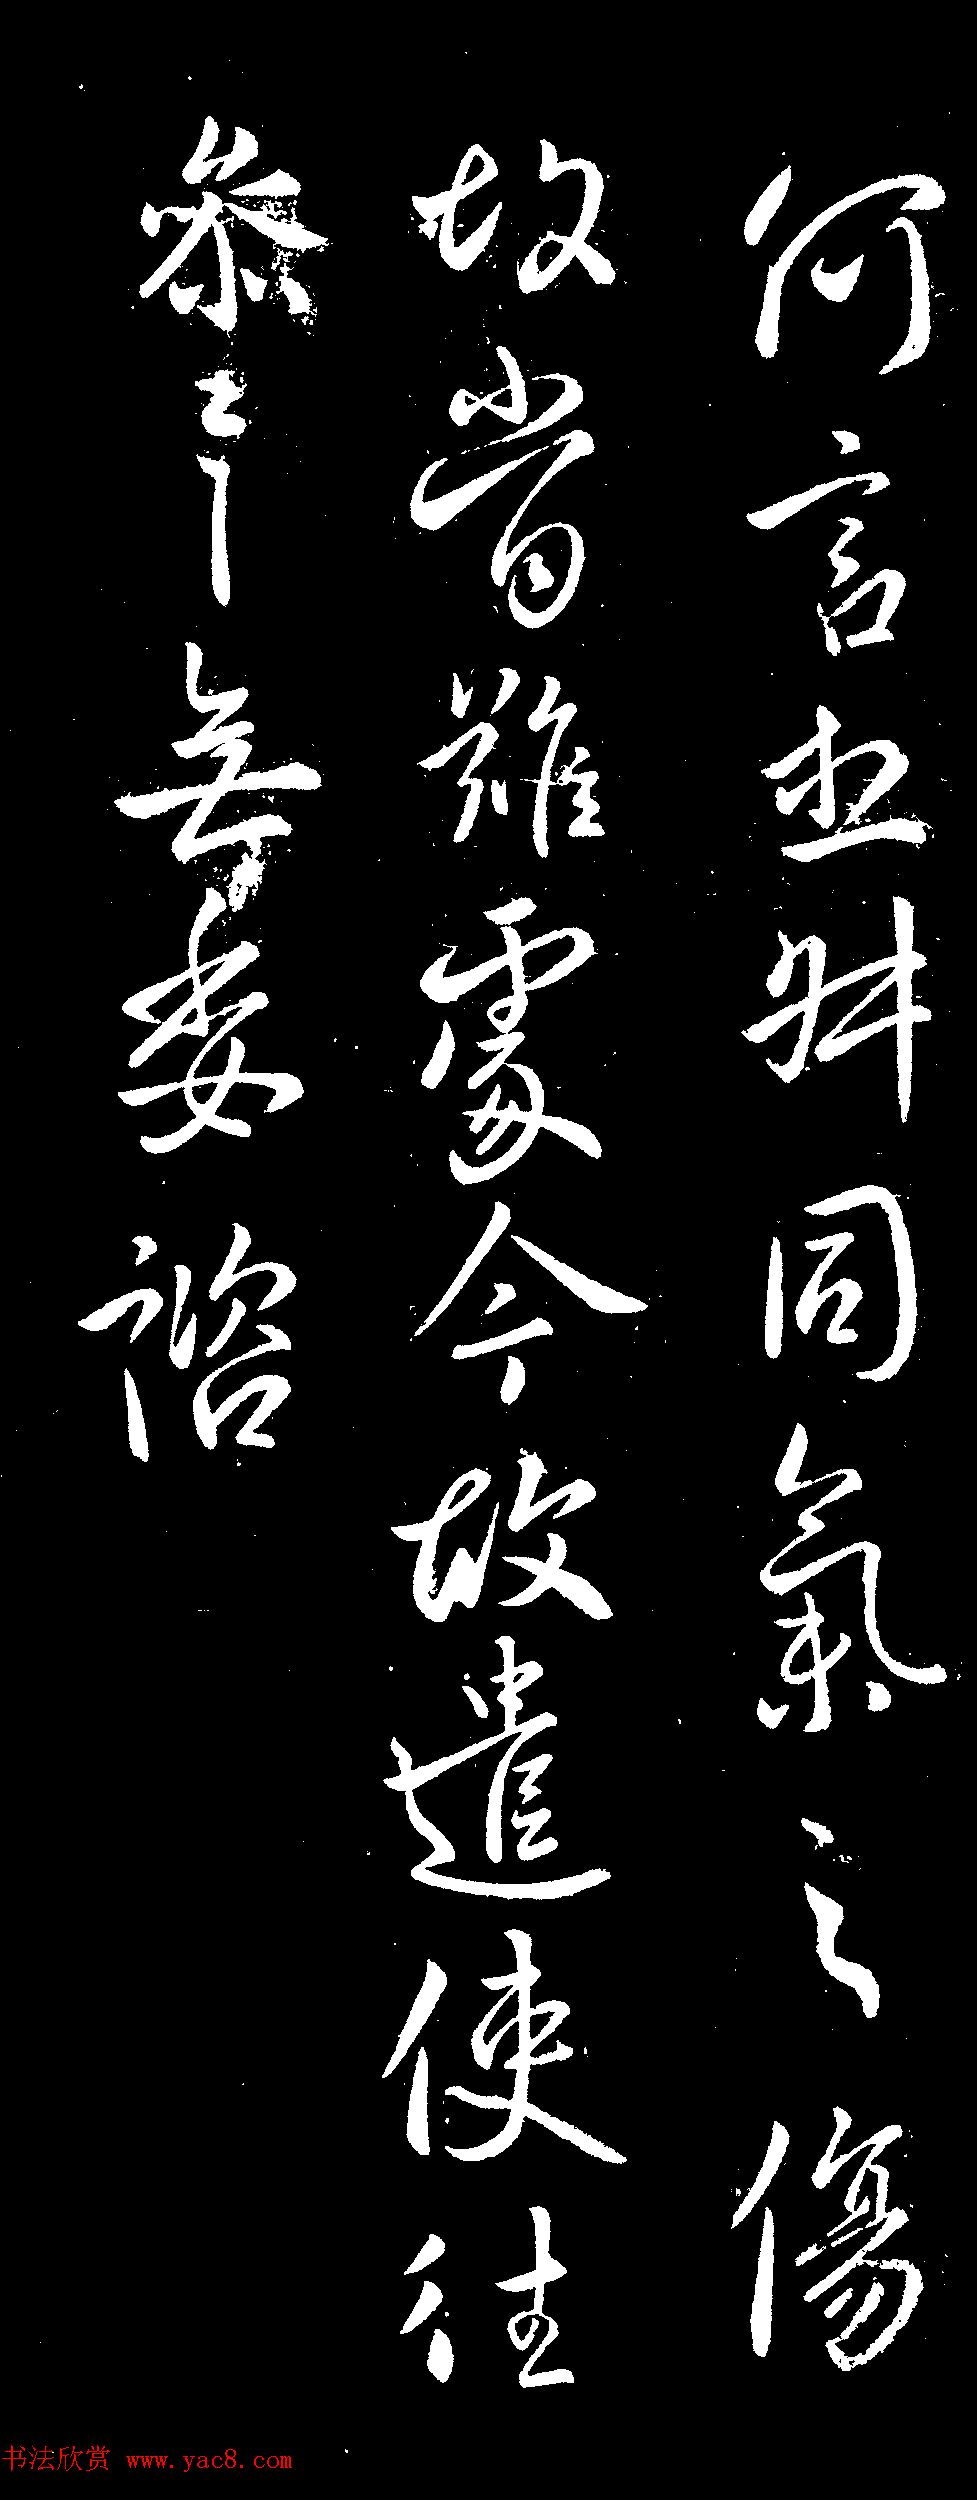 何言世将同氣之傷
故當難處今故遣使往
參之无委諮
书法欣赏 www.yac8.com